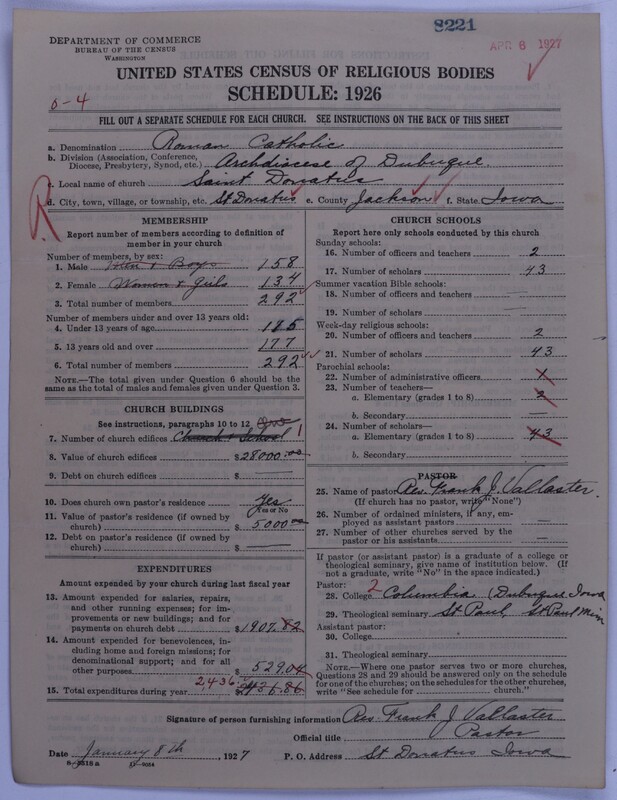 8221
DEPARTMENT OF COMMERCE
BUREAU OF THE CENSUS
WASHINGTON
APR 8 1927
UNITED STATES CENSUS OF RELIGIOUS BODIES
SCHEDULE: 1926
0-4
FILL OUT A SEPARATE SCHEDULE FOR EACH CHURCH. SEE INSTRUCTIONS ON THE BACK OF THIS SHEET
a. Denomination Roman Catholic
b. Division (Association, Conference, Diocese, Presbytery, Synod, etc.) Archdiocese of Dubuque
c. Local name of church Saint Donatus
R
d. City, town, village, or township, etc. St Donatus e. County Jackson f. State Iowa
MEMBERSHIP
Report number of members according to definition of
member in your church
Number of members, by sex:
1. Male Men & Boys 158
2. Female Women & Girls 134
3. Total number of members 292
Number of members under and over 13 years old:
4. Under 13 years of age 115
5. 13 years old and over 177
6. Total number of members 292
NOTE.—The total given under Question 6 should be
the same as the total of males and females given under Question 3.
CHURCH BUILDINGS
See instructions, paragraphs 10 to 12
7. Number of church edifices Church & School 1
8. Value of church edifices $28000.00
9. Debt on church edifices $
10. Does church own pastor's residence Yes
Yes or No
11. Value of pastor's residence (if owned by
church) $ 5000.00
12. Debt on pastor's residence (if owned by
church) $
EXPENDITURES
Amount expended by your church during last fiscal year
13. Amount expended for salaries, repairs,
and other running expenses; for im-
provements or new buildings; and for
payments on church debt $1907.82
14. Amount expended for benevolences, in-
cluding home and foreign missions; for
denominational support; and for all
other purposes 529.04
2,436
15. Total expenditures during year $2436.86
CHURCH SCHOOLS
Report here only schools conducted by this church
Sunday schools:
16. Number of officers and teachers 2
17. Number of scholars 43
Summer vacation Bible schools:
18. Number of officers and teachers —
19. Number of scholars —
Week-day religious schools:
20. Number of officers and teachers 2
21. Number of scholars 43
Parochial schools:
22. Number of administrative officers
23. Number of teachers—
a. Elementary (grades 1 to 8) 2
b. Secondary —
24. Number of scholars—
a. Elementary (grades 1 to 8) 43
b. Secondary —
PASTOR
25. Name of pastor Rev. Frank J. Vallaster.
(If church has no pastor, write "None")
26. Number of ordained ministers, if any, em-
ployed as assistant pastors —
27. Number of other churches served by the
pastor or his assistants —
If pastor (or assistant pastor) is a graduate of a college or
theological seminary, give name of institution below. (If
not a graduate, write "No" in the space indicated.)
Pastor:
28. College 2 Columbia (Dubuque Iowa
29. Theological seminary St Paul, St Paul Minn
Assistant pastor:
30. College
31. Theological seminary
NOTE.—Where one pastor serves two or more churches,
Questions 28 and 29 should be answered only on the schedule
for one of the churches; on the schedules for the other churches,
write "See schedule for church."
Signature of person furnishing information Rev Frank J Vallaster
Official title Pastor
Date January 8th, 1927 P. O. Address St Donatus Iowa